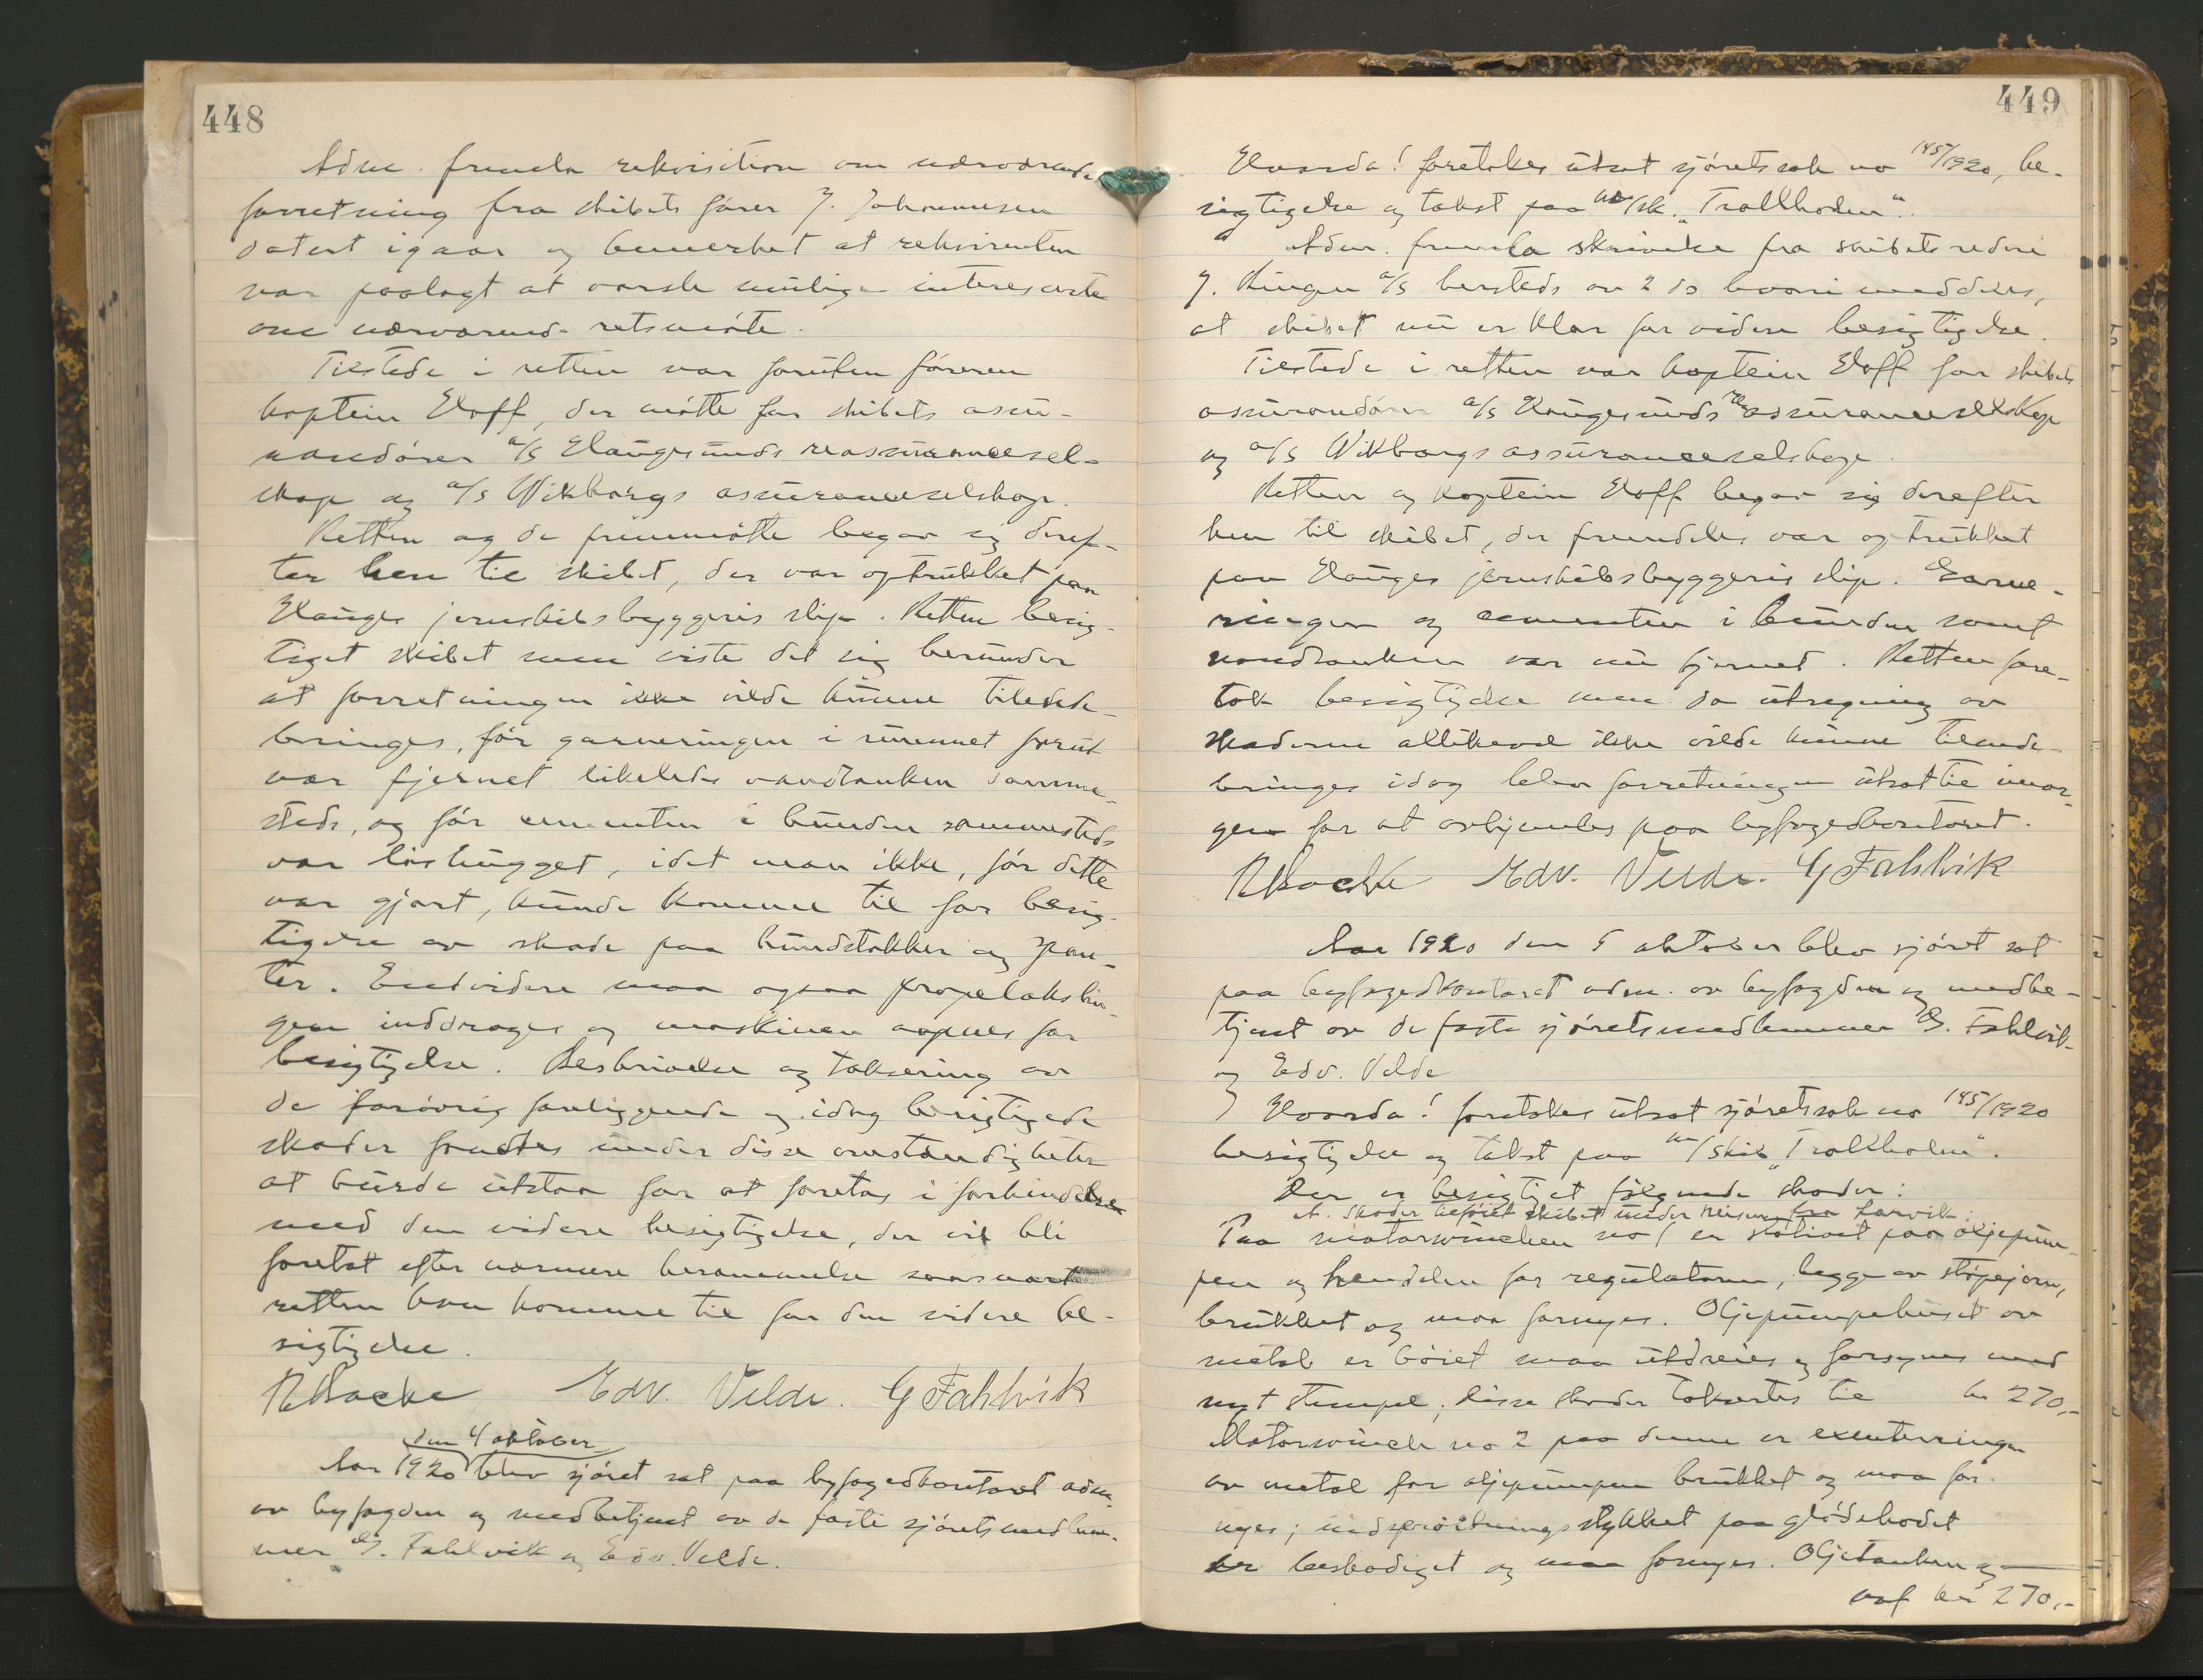 448
Adm. fremla rekvisition om nærværende
forretning fra skibets fører J. Johannesen
datert igaar og bemerket at rekvirenten
var paalagt at varsle mulige interesserte
om nærværende retsmøte.
Tilstede i retten var foruten føreren
kaptein Hoff, der møtte for skibets assu-
randører a/s Haugesunds reassuransesel-
skap og a/s Vikborgs assuranceselskap.
Retten og de fremmøtte begav sig deref-
ter hen til skibet, der var optrukket paa
Hauges jernskibsbyggeris slip. Retten besig-
tiget skibet men viste det sig herunder
at forretningen ikke vilde kunne tilende-
bringes, før garneringen i rummet forut
var fjernet likeledes vandtanken samme-
steds, og før cementen i bunden sammesteds
var løshugget, idet man ikke, før dette
var gjort, kunde komme til for besig-
tigelse av skade paa bundstokker og span-
ter. Endvidere maa ogsaa propelakslin-
gen inddrages og maskinen aapnes for
besigtigelse. Beskrivelse og taksering av
de forøvrig foreliggende og idag besigtigede
skader fandtes under disse omstændigheter
at burde utstaa for at foretas i forbindelse
med den videre besigtigelse, der vil bli
foretat efter nærmere berammelse saasnart
retten kan komme til for den videre be-
sigtigelse.
R Backe Edv. Velde. G Fahlvik
den 4 oktober
Aar 1920 blev sjøret sat paa byfogedkontoret adm.
av byfogden og medbetjent av de faste sjøretsmedlem-
mer G. Fahlvik og Edv. Velde.
449
Hvorda! foretokes utsat sjøretssak no 145/1920, be-
sigtigelse og takst paa m/sk. "Trollholm".
Adm. fremla skrivelse fra skibets rederi
J. Ringen a/s hersteds av 2 ds hvori meddeles,
at skibet nu er klar for videre besigtigelse.
Tilstede i retten var kaptein Hoff for skibets
assurandører a/s Haugesunds reassuranceselskap
og a/s Vikborgs assuranceselskap.
Retten og kaptein Hoff begav sig derefter
hen til skibet, der fremdeles var optrukket
paa Hauges jernskibsbyggeris slip. Garne-
ringen og cementen i bunden samt
vandtanken var nu fjernet. Retten fore-
tok besigtigelse men da utregning av
skaderne allikevel ikke vilde kunne tilende-
bringes idag blev forretningen utsat til imor-
gen for at avhjemles paa byfogedkontoret.
R Backe Edv. Velde. G Fahlvik
Aar 1920 den 5 oktober blev sjøret sat
paa byfogedkontoret adm. av byfogden og medbe-
tjent av de faste sjøretsmedlemmer G. Fahlvik
og Edv. Velde
Hvorda! foretokes utsat sjøretssak no 145/1920
besigtigelse og takst paa m/skib "Trollholm".
Der er besigtiget følgende skader:
A. Skader tilføiet skibet under reisen fra Larvik.
Paa motorwinchen no 1 er stativet paa oljepum-
pen og hendelen for regulatoren, begge av støpejern,
brukket og maa fornyes. Oljepumpehuset av
metal er bøiet maa utdreies og forsynes med
nyt stempel; disse skader taksertes til kr 270,-
Motorwinch no 2 paa denne er excenterringen
av metal for oljepumpen brukket og maa for-
nyes; indsprøitningsstykket paa glødehodet
er beskadiget og maa fornyes. Oljetanken og
ovf kr 270,-